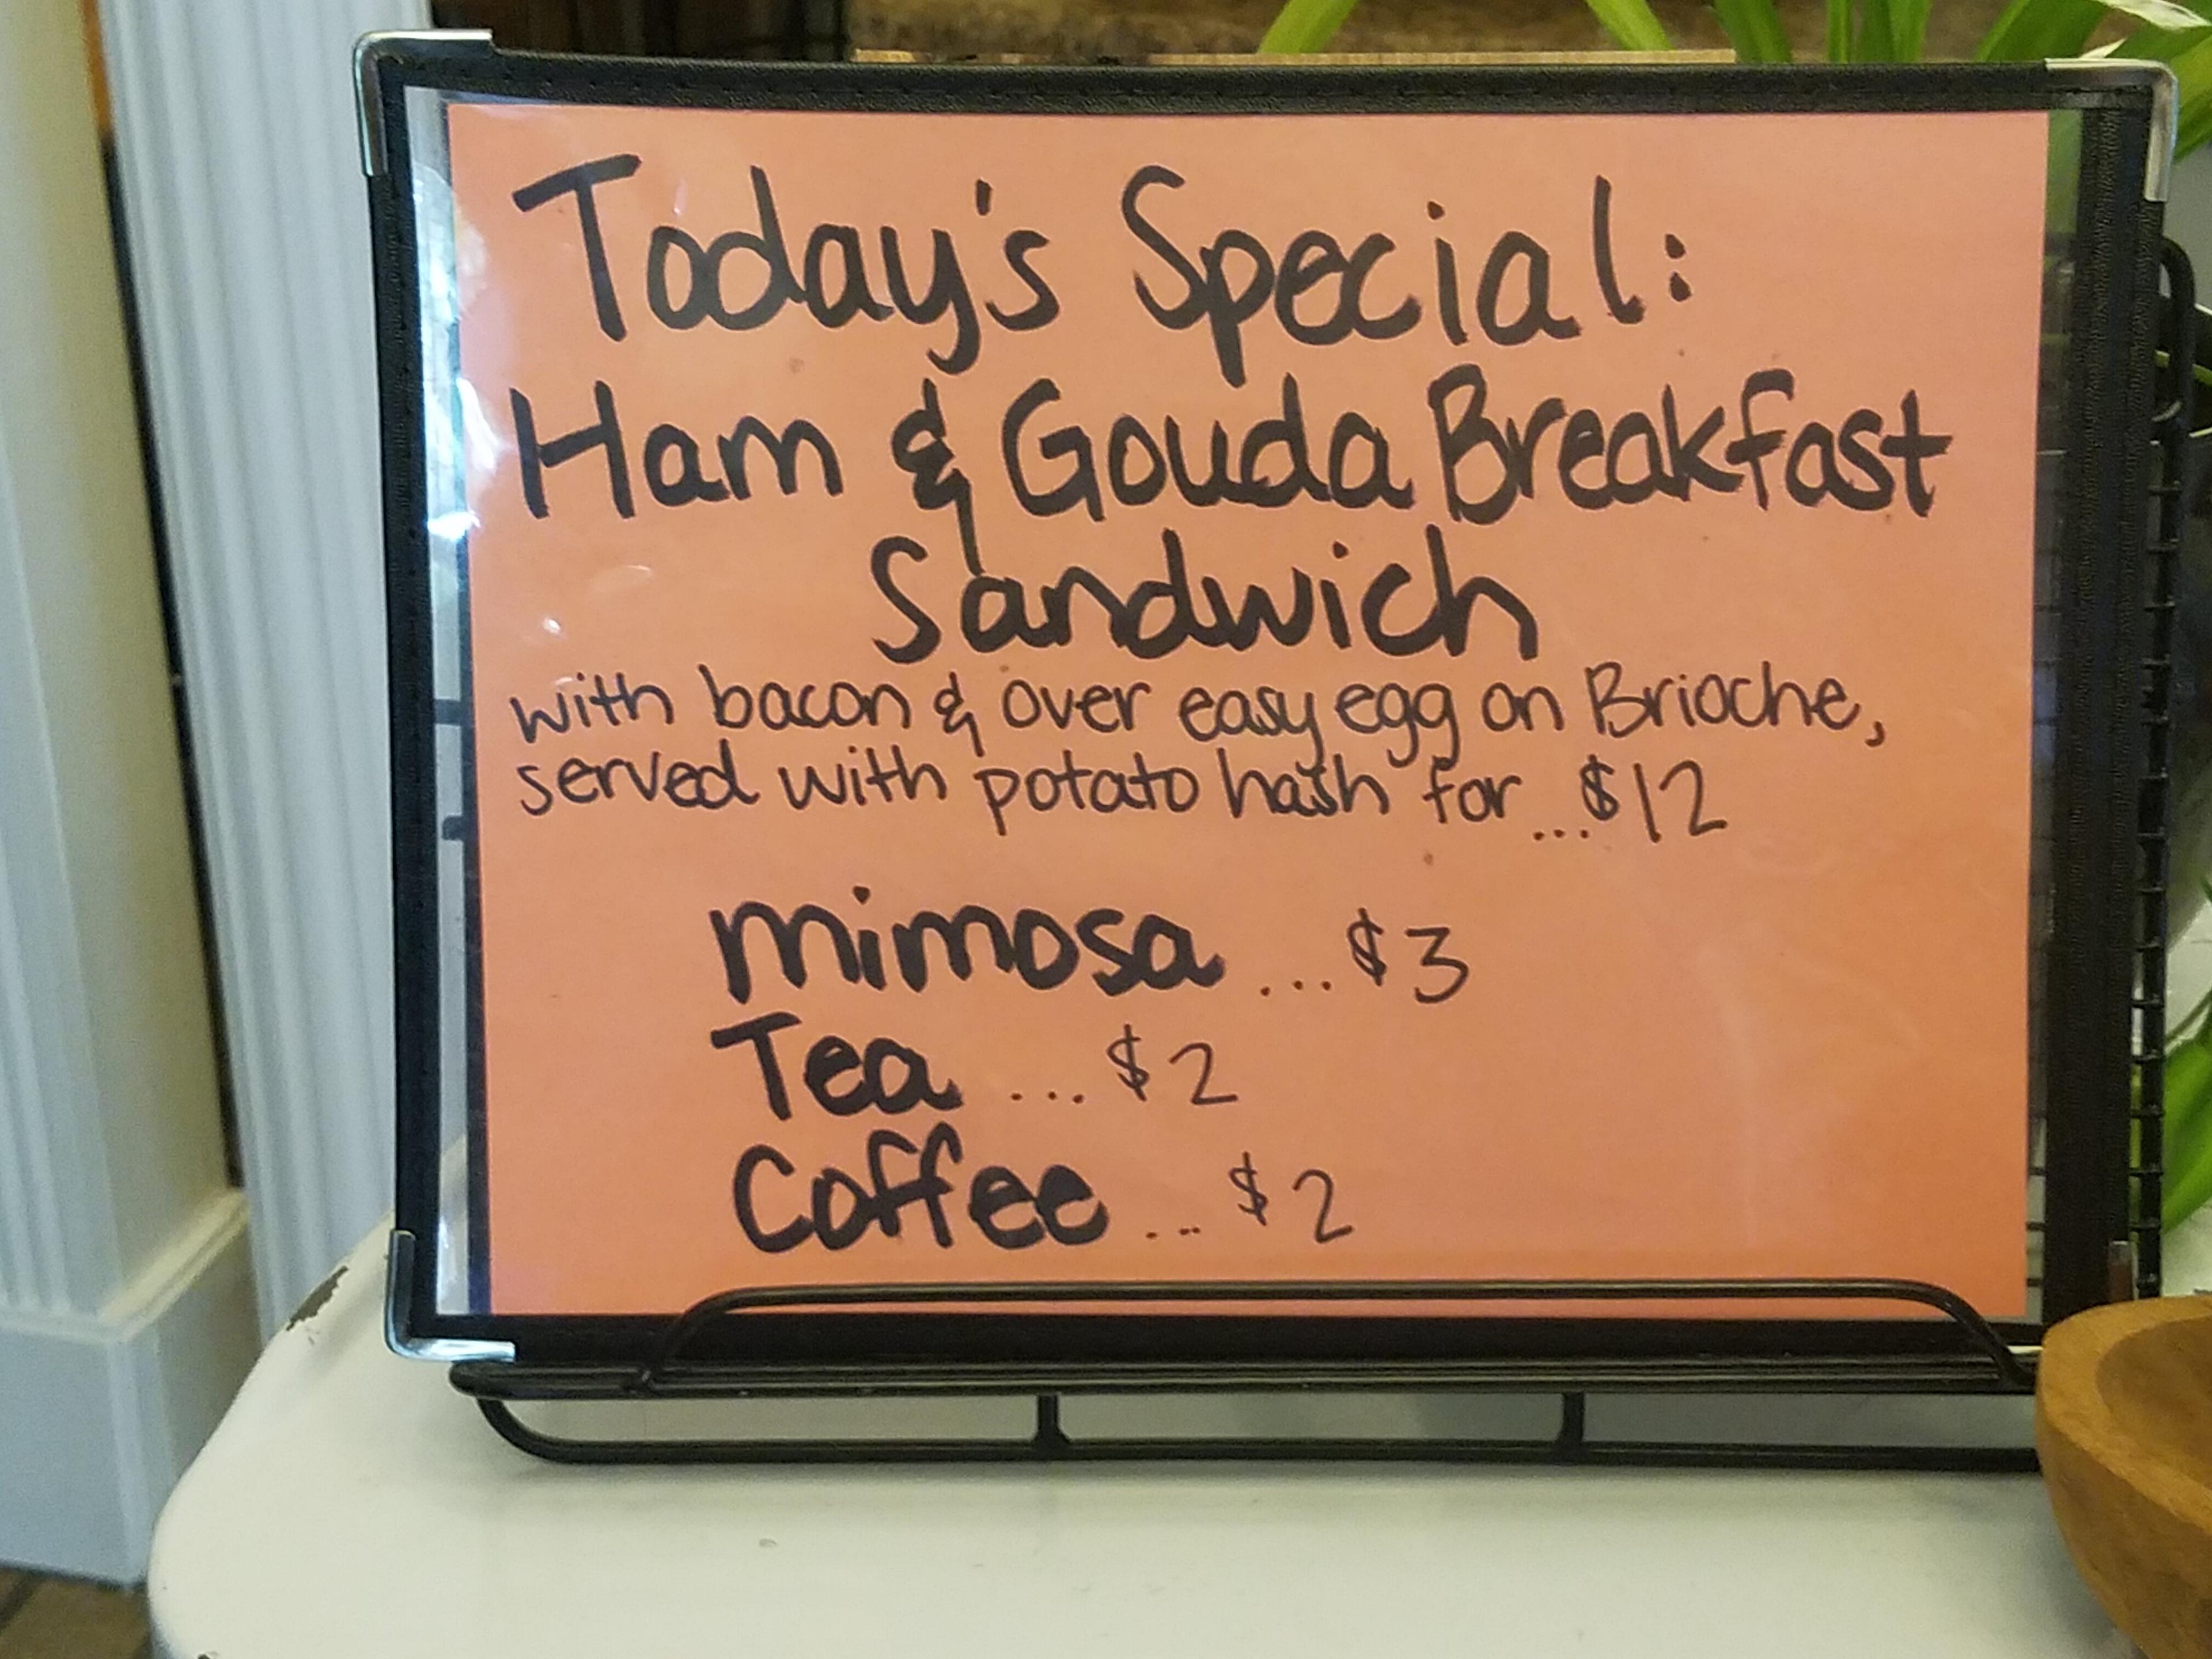 Today's Special:
Ham & Gouda Breakfast
Sandwich
with bacon & over easy egg on Brioche,
served with potato hash for...$12
mimosa ...$3
Tea ...$2
Coffee ...$2